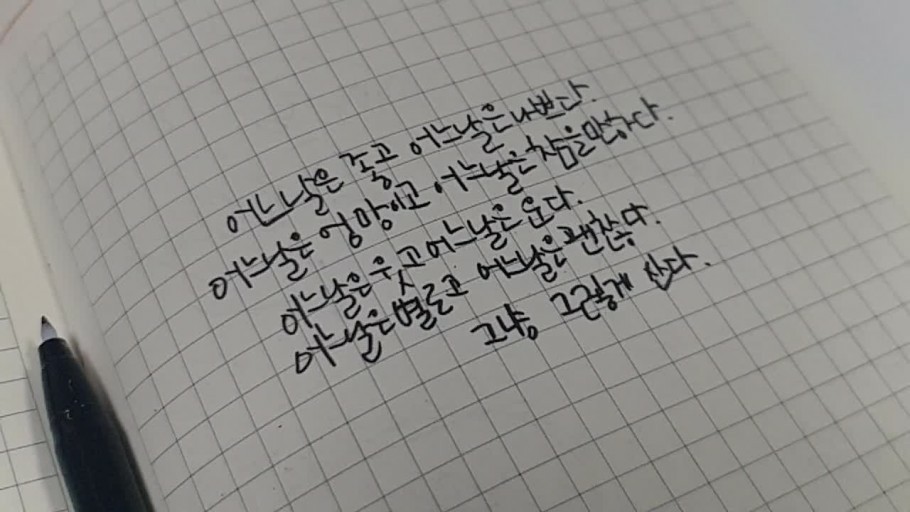 어느날은 좋고 어느날은 나쁘다.
어느날은 엉망이고 어느날은 참을만하다.
어느날은 웃고 어느날은 운다.
어느날은 별로고 어느날은 괜찮다.
그냥 그렇게 산다.